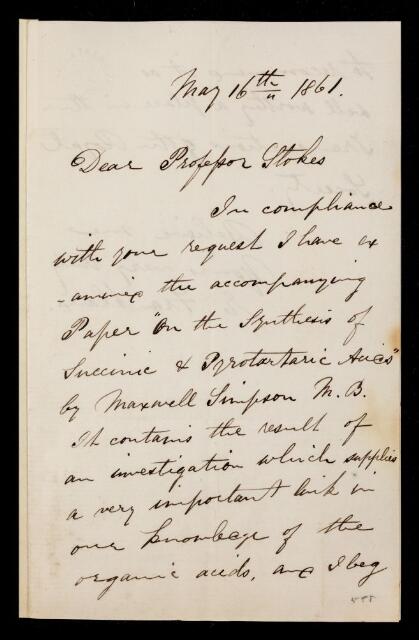 May 16th 1861.
Dear Professor Stokes
In compliance
with your request I have ex
-amined the accompanying
Paper "On the Synthesis of
Succinic & Pyrotartaric Acids"
by Maxwell Simpson M.B.
It contains the result of
an investigation which supplies
a very important link in
our knowledge of the
organic acids, and I beg